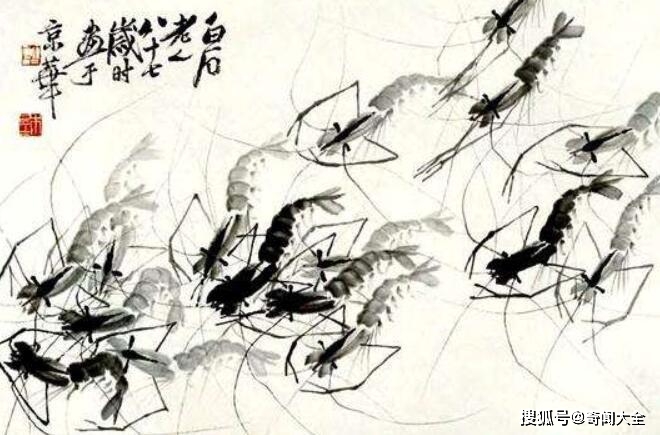 白石
老人
八十七
歲时
畫于
京華
搜狐号@奇闻大全